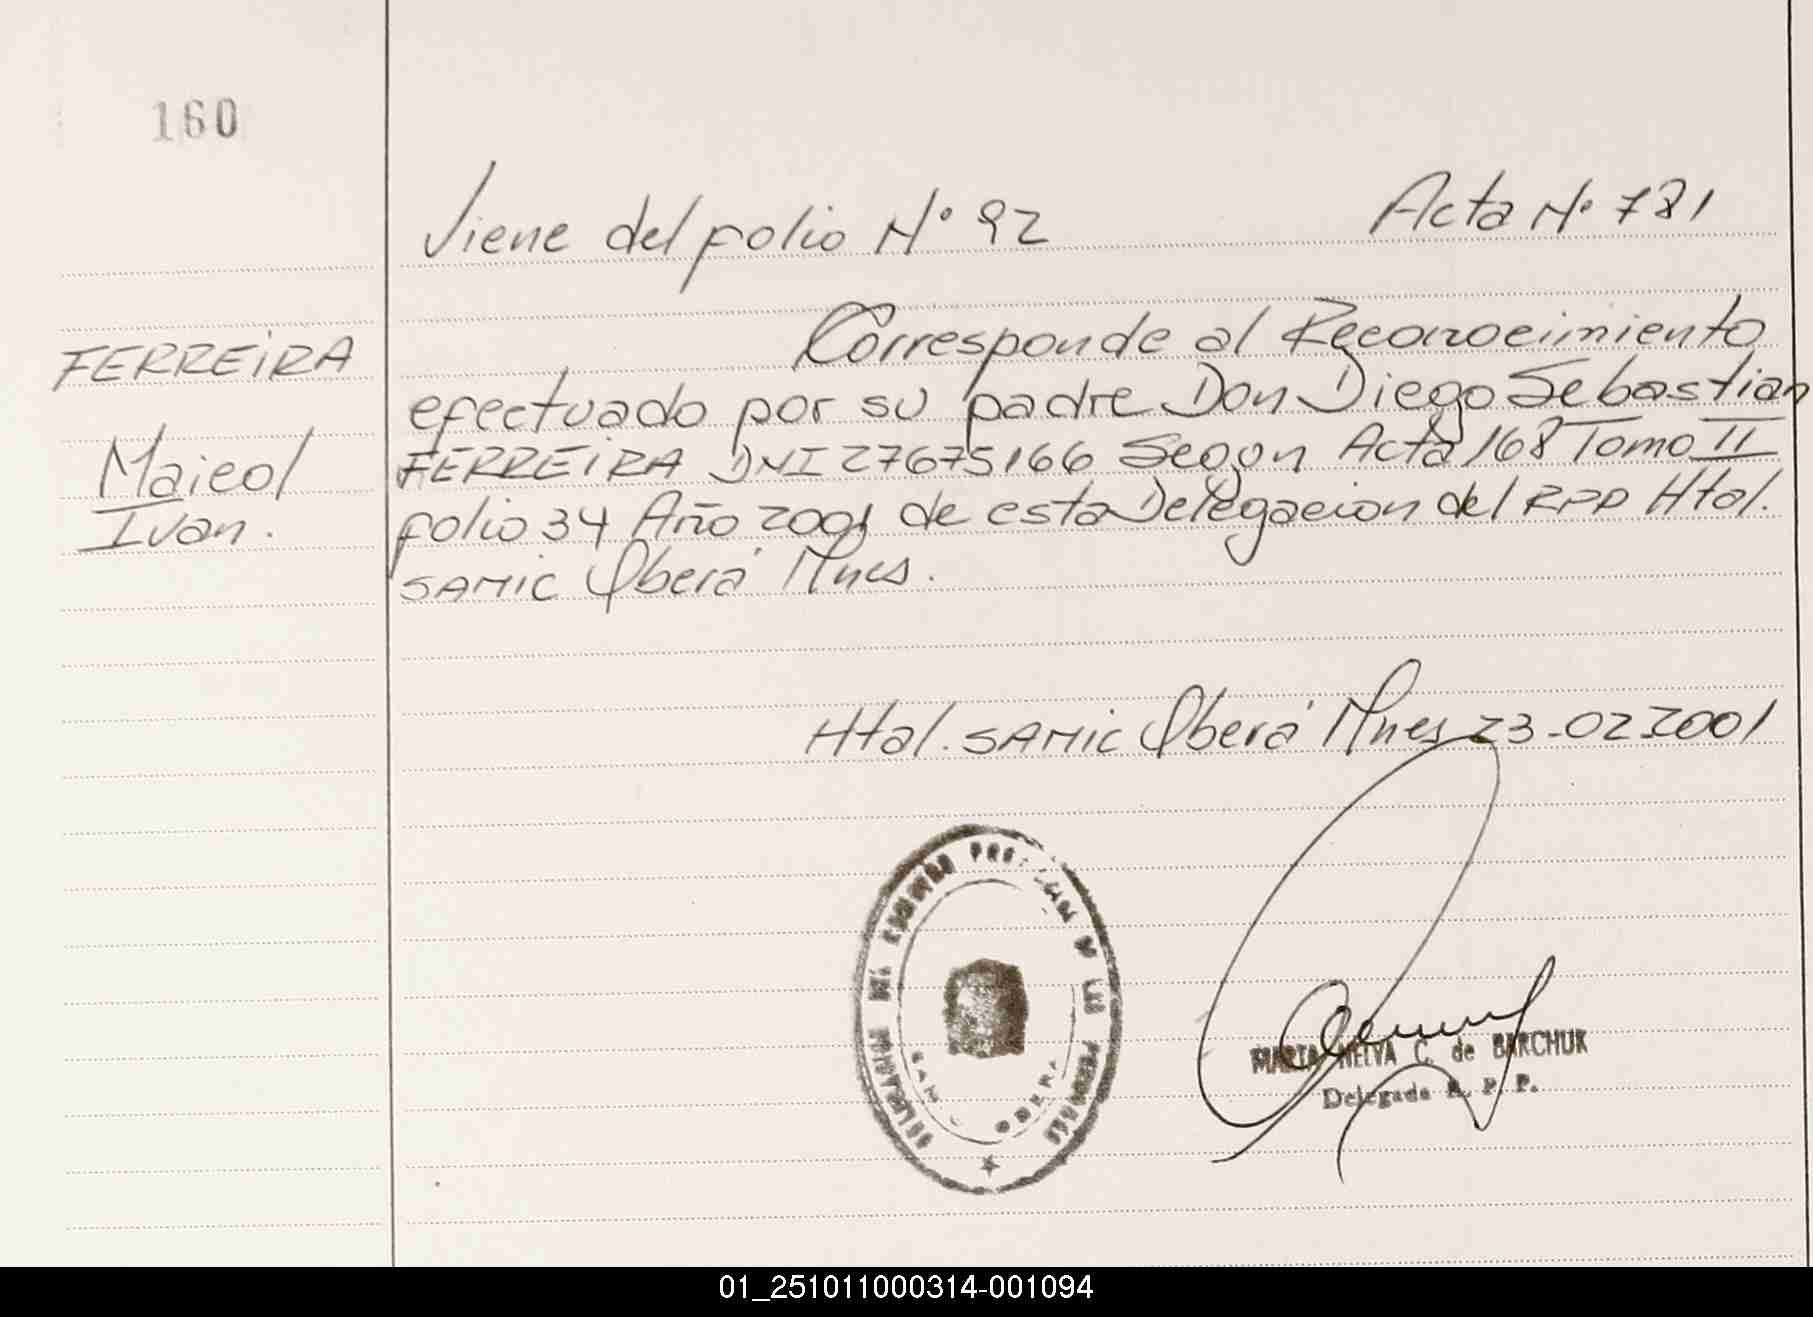 160
Viene del folio N° 92 Acta N° 781
FERREIRA
Maicol
Ivan.
Corresponde al Reconocimiento
efectuado por su padre Don Diego Sebastian
FERREIRA DNI 27675166 Segun Acta 168 Tomo II
folio 34 Año 2001 de esta Delegacion del RPP Htal.
SAMIC Oberá Mnes.
Htal. SAMIC Oberá Mnes 23-02 2001
DE LAS PERSONAS
OBERA
MARTA NELVA C. de BARCHUK
Delegada R. P. P.
01_251011000314-001094